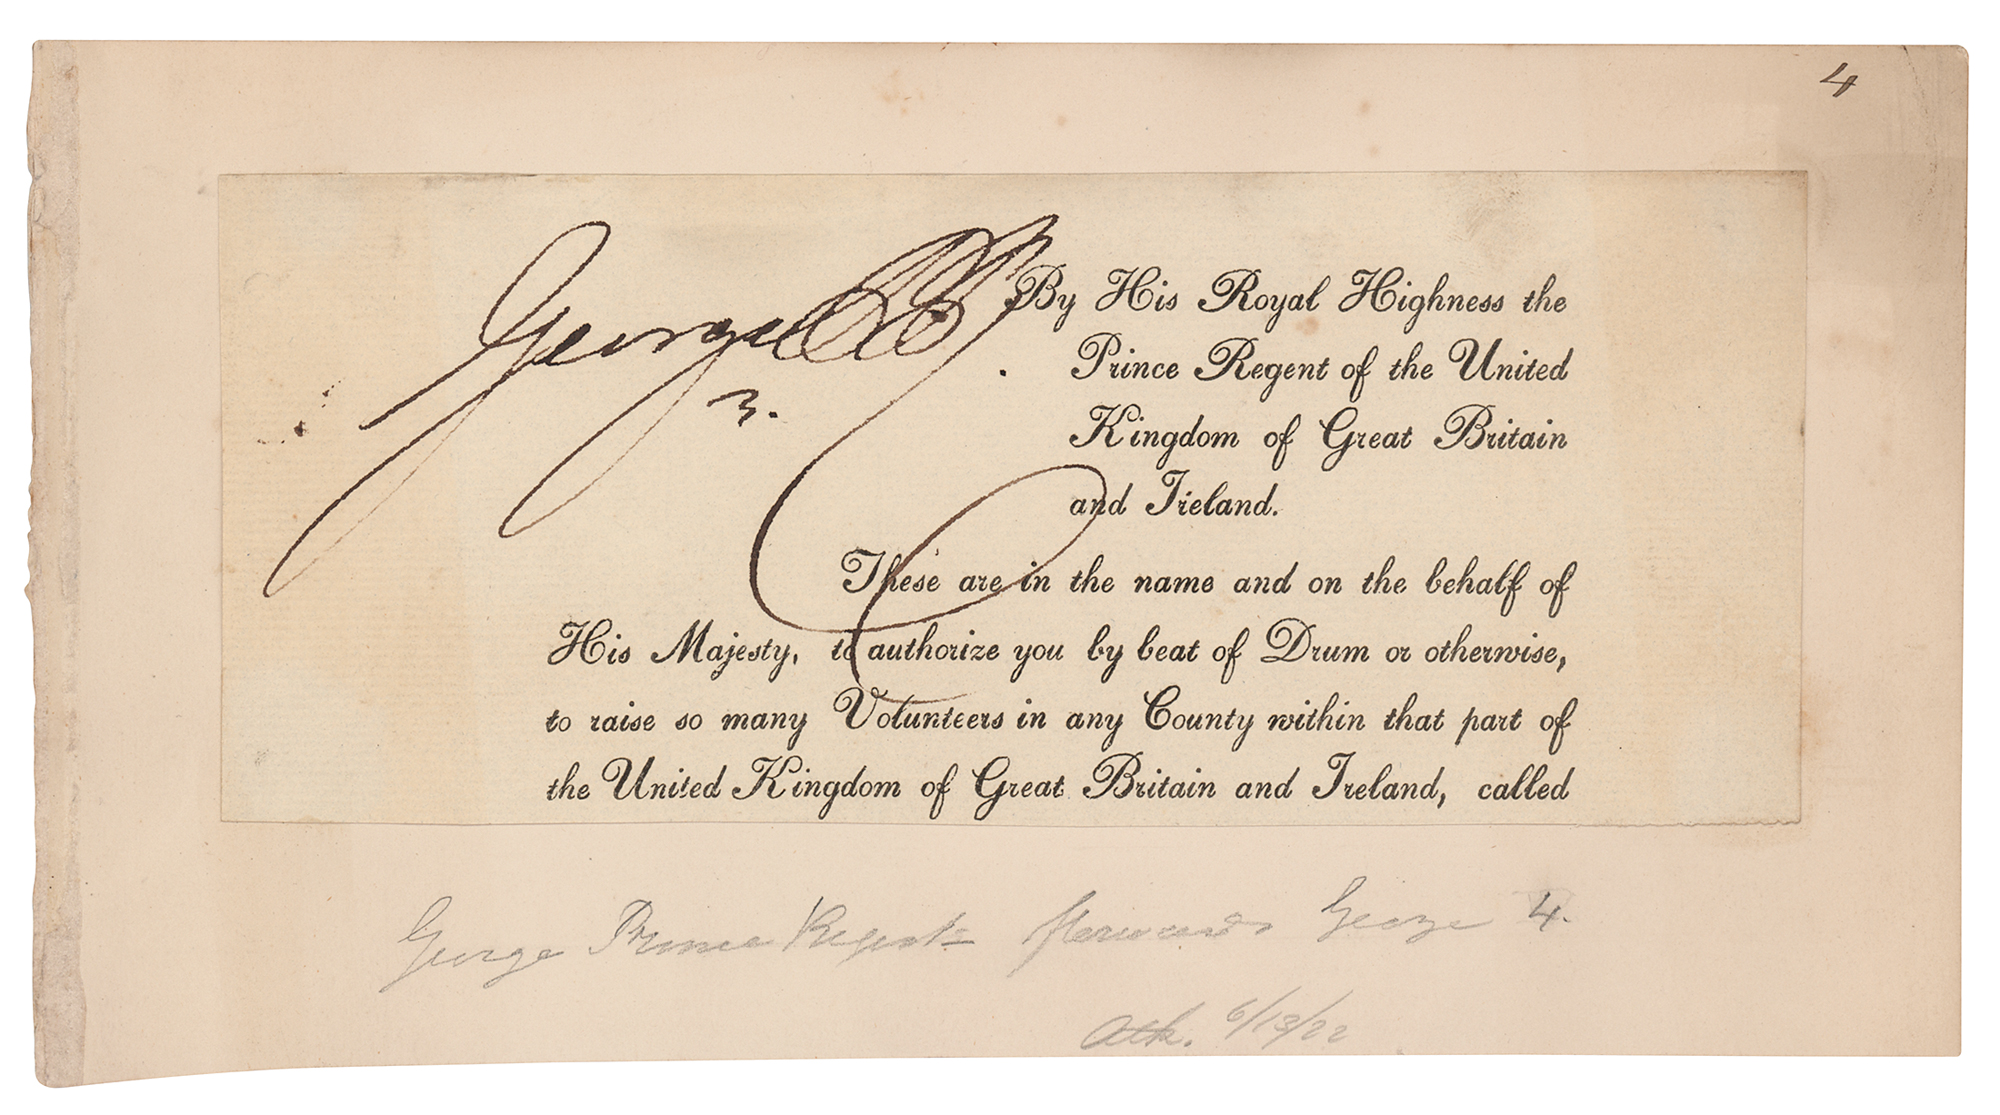 4
George PR
3.
By His Royal Highness the
Prince Regent of the United
Kingdom of Great Britain
and Ireland.
These are in the name and on the behalf of
His Majesty, to authorize you by beat of Drum or otherwise,
to raise so many Volunteers in any County within that part of
the United Kingdom of Great Britain and Ireland, called
George Prince Regent afterwards George 4.
6/13/22